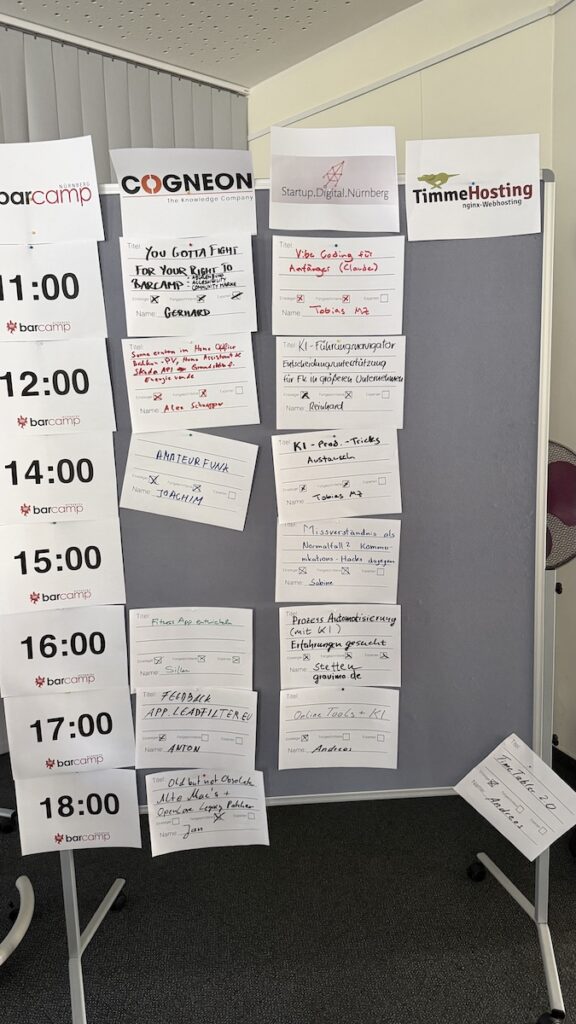 NÜRNBERG
barcamp
COGNEON
The Knowledge Company
Startup.Digital.Nürnberg
TimmeHosting
nginx-Webhosting
11:00
barcamp
Titel
YOU GOTTA FIGHT
FOR YOUR RIGHT TO
BARCAMP
ACCESSIBILITY
COMMUNITY MARKE
Name: GERHARD
Titel:
Vibe Coding für
Anfänger (Claude)
Einsteiger Fortgeschrittene Experten
Name: Tobias MZ
12:00
barcamp
Sonne ernten im Home Office
Balkon-PV, Home Assistant &
Skoda API
Energiewende
Name: Alex
Titel: KI-Führungsnavigator
Entscheidungsunterstützung
für FK in größeren Unternehmen
Einsteiger Fortgeschrittene Experten
Name: Reinhard
14:00
barcamp
Titel:
AMATEURFUNK
Einsteiger Fortgeschrittene Experten
Name: JOACHIM
Titel:
KI-Prod.-Tricks
Austausch
Einsteiger Fortgeschrittene Experten
Name: Tobias MZ
15:00
barcamp
Titel: Missverständnis als
Normalfall? Kommu-
nikations-Hacks dagegen
Einsteiger Fortgeschrittene Experten
Name: Sabine
16:00
barcamp
Titel:
Fitness App entwickeln
Einsteiger Fortgeschrittene Experten
Name: Silke
Titel:
Prozess Automatisierung
(mit KI)
Erfahrungen gesucht
Einsteiger Fortgeschrittene Experten
Name: stetten
gravima.de
17:00
barcamp
Titel: FEEDBACK
APP.LEADFILTER.EU
Einsteiger Fortgeschrittene Experten
Name: ANTON
Titel:
Online Tools + KI
Einsteiger Fortgeschrittene Experten
Name: Andreas
18:00
barcamp
Titel: Old but not Obsolete
Alte Mac's +
OpenCore Legacy Patcher
Einsteiger Fortgeschrittene Experten
Name: Jan
Titel:
TimeTable 2.0
Name: Andreas